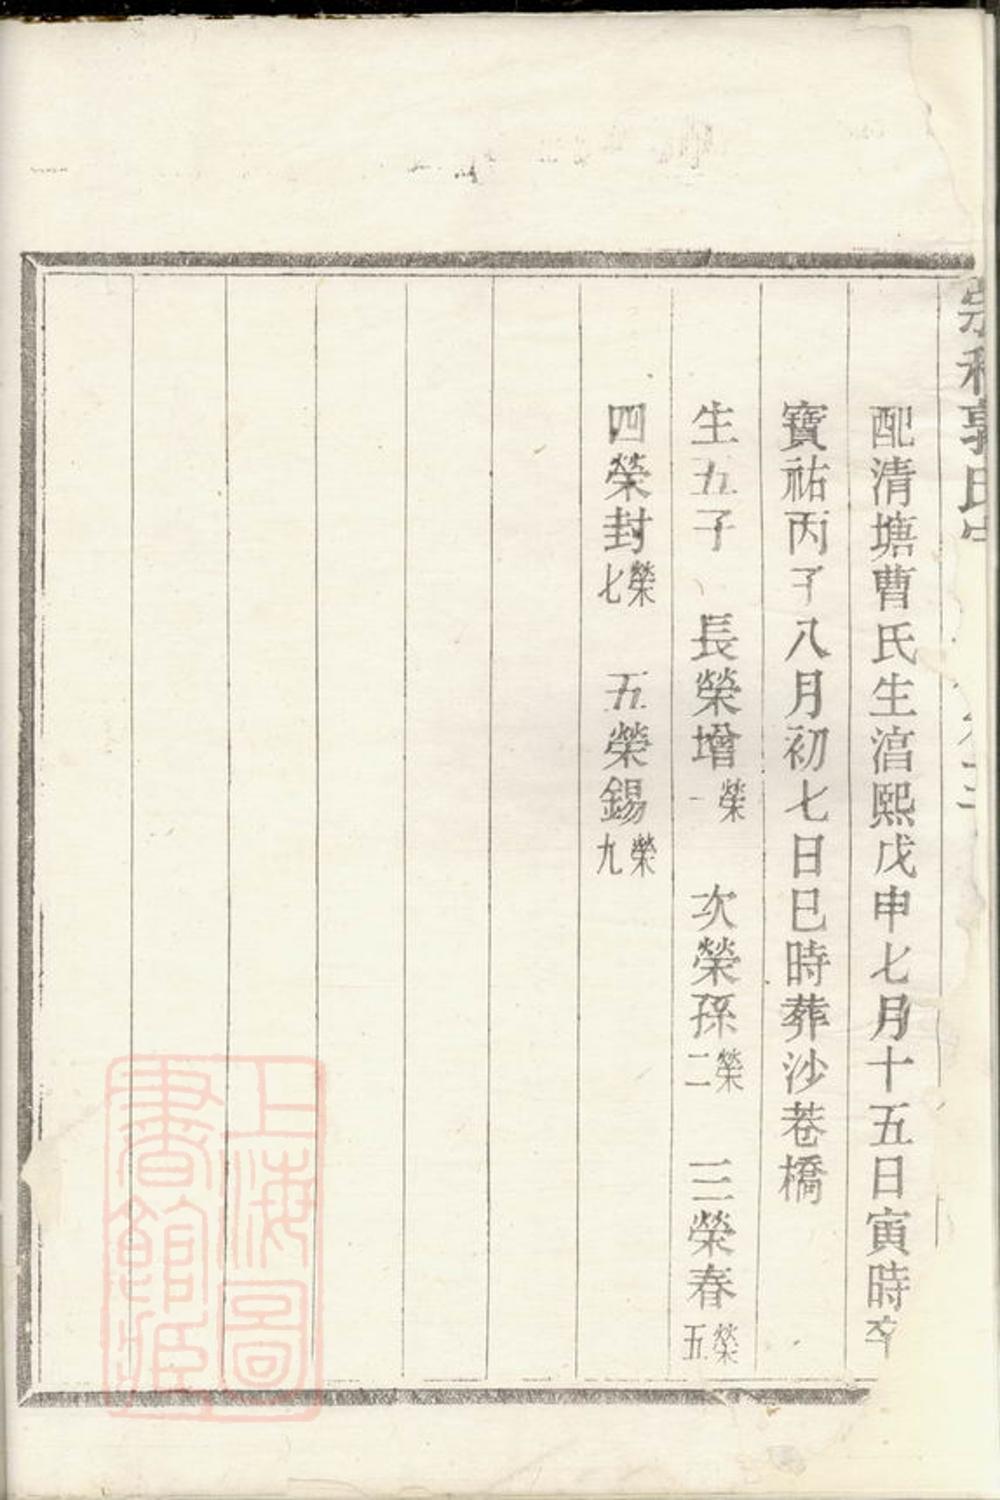 郭氏
配清塘曹氏生湻熙戊申七月十五日寅時卒
寶祐丙子八月初七日巳時葬沙巷橋
生五子 長榮增榮一 次榮孫榮二 三榮春榮五
四榮封榮七 五榮錫榮九
上海圖書館藏